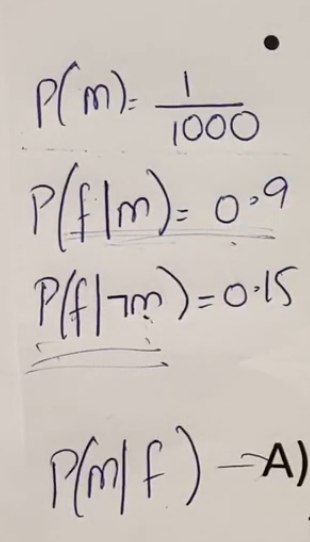 P(m) = 1/1000
P(f|m) = 0.9
P(f|¬m) = 0.15
P(m|f) - A)